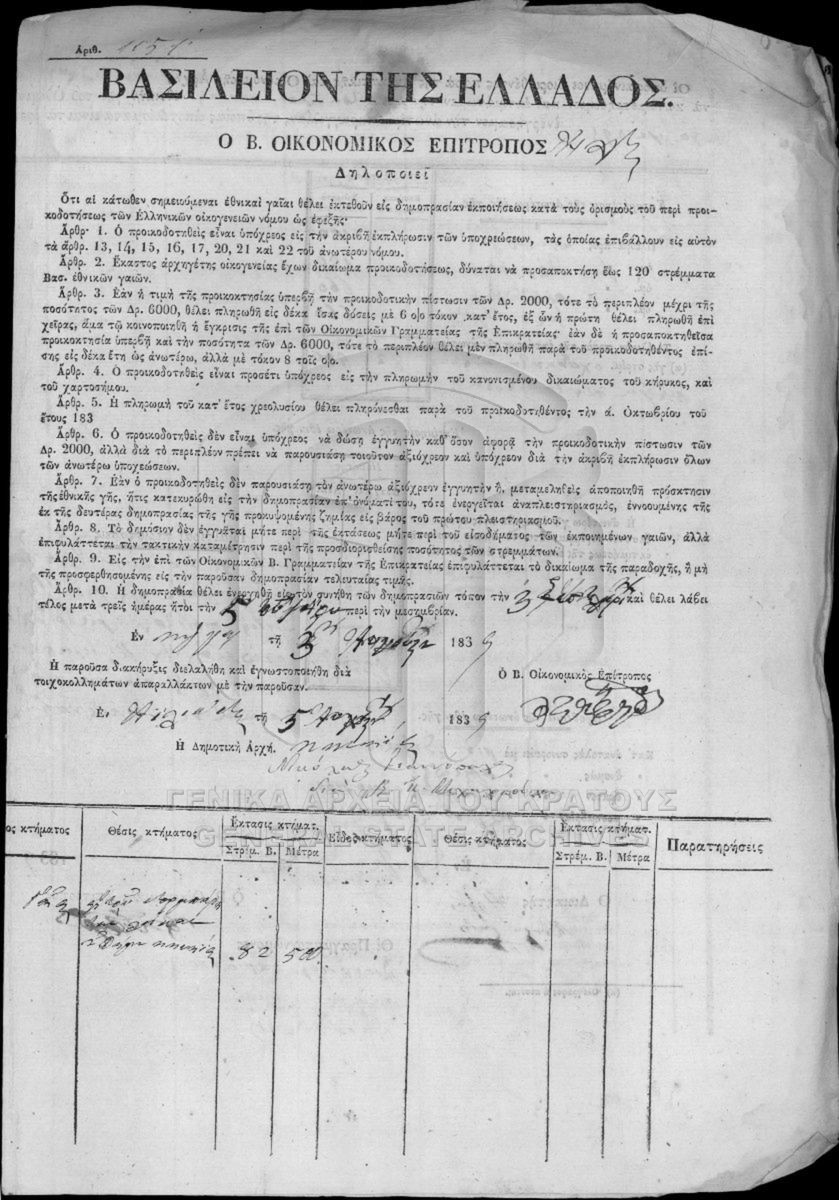 Ἀριθ.
ΒΑΣΙΛΕΙΟΝ ΤΗΣ ΕΛΛΑΔΟΣ.
Ο Β. ΟΙΚΟΝΟΜΙΚΟΣ ΕΠΙΤΡΟΠΟΣ
Δηλοποιεῖ
Ὅτι αἱ κάτωθεν σημειούμεναι ἐθνικαὶ γαῖαι θέλει ἐκτεθοῦν εἰς δημοπρασίαν ἐκποιήσεως κατὰ τοὺς ὁρισμοὺς τοῦ περὶ προι-
κοδοτήσεως τῶν Ἑλληνικῶν οἰκογενειῶν νόμου ὡς ἐφεξῆς·
Ἄρθρ· 1. Ὁ προικοδοτηθεὶς εἶναι ὑπόχρεος εἰς τὴν ἀκριβῆ ἐκπλήρωσιν τῶν ὑποχρεώσεων, τὰς ὁποίας ἐπιβάλλουν εἰς αὐτὸν
τὰ ἄρθρ. 13, 14, 15, 16, 17, 20, 21 καὶ 22 τοῦ ἀνωτέρου νόμου.
Ἄρθρ. 2. Ἕκαστος ἀρχηγέτης οἰκογενείας ἔχων δικαίωμα προικοδοτήσεως, δύναται νὰ προσαποκτήσῃ ἕως 120 στρέμματα
Βασ. ἐθνικῶν γαιῶν.
Ἄρθρ. 3. Ἐὰν ἡ τιμὴ τῆς προικοκτησίας ὑπερβῇ τὴν προικοδοτικὴν πίστωσιν τῶν Δρ. 2000, τότε τὸ περιπλέον μέχρι τῆς
ποσότητος τῶν Δρ. 6000, θέλει πληρωθῆ εἰς δέκα ἴσας δόσεις μὲ 6 ο)ο τόκον κατ' ἔτος, ἐξ ὧν ἡ πρώτη θέλει πληρωθῆ ἐπὶ
χεῖρας, ἅμα τῷ κοινοποιηθῇ ἡ ἔγκρισις τῆς ἐπὶ τῶν Οἰκονομικῶν Γραμματείας τῆς Ἐπικρατείας· ἐὰν δὲ ἡ προσαποκτηθεῖσα
προικοκτησία ὑπερβῇ καὶ τὴν ποσότητα τῶν Δρ. 6000, τότε τὸ περιπλέον θέλει μὲν πληρωθῆ παρὰ τοῦ προικοδοτηθέντος ἐπί-
σης εἰς δέκα ἔτη ὡς ἀνωτέρω, ἀλλὰ μὲ τόκον 8 τοῖς ο)ο.
Ἄρθρ. 4. Ὁ προικοδοτηθεὶς εἶναι προσέτι ὑπόχρεος εἰς τὴν πληρωμὴν τοῦ κανονισμένου δικαιώματος τοῦ κήρυκος, καὶ
τοῦ χαρτοσήμου.
Ἄρθρ. 5. Ἡ πληρωμὴ τοῦ κατ' ἔτος χρεολυσίου θέλει πληρόνεσθαι παρὰ τοῦ προικοδοτηθέντος τὴν ά. Ὀκτωβρίου τοῦ
ἔτους 183
Ἄρθρ. 6. Ὁ προικοδοτηθεὶς δὲν εἶναι ὑπόχρεος νὰ δώσῃ ἐγγυητὴν καθ' ὅσον ἀφορᾷ τὴν προικοδοτικὴν πίστωσιν τῶν
Δρ. 2000, ἀλλὰ διὰ τὸ περιπλέον πρέπει νὰ παρουσιάσῃ τοιοῦτον ἀξιόχρεον καὶ ὑπόχρεον διὰ τὴν ἀκριβῆ ἐκπλήρωσιν ὅλων
τῶν ἀνωτέρω ὑποχεώσεων.
Ἄρθρ. 7. Ἐὰν ὁ προικοδοτηθεὶς δὲν παρουσιάσῃ τὸν ἀνωτέρω ἀξιόχρεον ἐγγυητὴν ἤ, μεταμεληθεὶς ἀποποιηθῇ πρόσκτησιν
τῆς ἐθνικῆς γῆς, ἥτις κατεκυρώθη εἰς τὴν δημοπρασίαν ἐπ' ὀνόματί του, τότε ἐνεργεῖται ἀναπλειστηριασμὸς, ἐννοουμένης τῆς
ἐκ τῆς δευτέρας δημοπρασίας τῆς γῆς προκυψομένης ζημίας εἰς βάρος τοῦ πρώτου πλειστηριασμοῦ.
Ἄρθρ. 8. Τὸ δημόσιον δὲν ἐγγυᾶται μήτε περὶ τῆς ἐκτάσεως μήτε περὶ τοῦ εἰσοδήματος τῶν ἐκποιημένων γαιῶν, ἀλλὰ
ἐπιφυλάττεται τὴν τακτικὴν καταμέτρησιν περὶ τῆς προσδιορισθείσης ποσότητος τῶν στρεμμάτων.
Ἄρθρ. 9. Εἰς τὴν ἐπὶ τῶν Οἰκονομικῶν Β. Γραμματείαν τῆς Ἐπικρατείας ἐπιφυλάττεται τὸ δικαίωμα τῆς παραδοχῆς, ἢ μὴ
τῆς προσφερθησομένης εἰς τὴν παροῦσαν δημοπρασίαν τελευταίας τιμῆς.
Ἄρθρ. 10. Ἡ δημοπρασία θέλει ἐνεργηθῆ εἰς τὸν συνήθη τῶν δημοπρασιῶν τόπον τὴν 3 καὶ θέλει λάβει
τέλος μετὰ τρεῖς ἡμέρας ἤτοι τὴν 5 περὶ τὴν μεσημβρίαν.
Ἐν τῇ 3 183 9
Ἡ παροῦσα διακήρυξις διελαλήθη καὶ ἐγνωστοποιήθη διὰ
τοιχοκολλημάτων ἀπαραλλάκτων μὲ τὴν παροῦσαν.
Ὁ Β. Οἰκονομικὸς Ἐπίτροπος
Ἐν τῇ 5 183 9
Ἡ Δημοτικὴ Ἀρχή.
ΓΕΝΙΚΑ ΑΡΧΕΙΑ ΤΟΥ ΚΡΑΤΟΥΣ
GENERAL STATE ARCHIVES
ος κτήματος Θέσις κτήματος Ἔκτασις κτήματ. Εἶδος κτήματος Θέσις κτήματος Ἔκτασις κτήματ. Παρατηρήσεις
Στρέμ. Β. Μέτρα Στρέμ. Β. Μέτρα
82 500